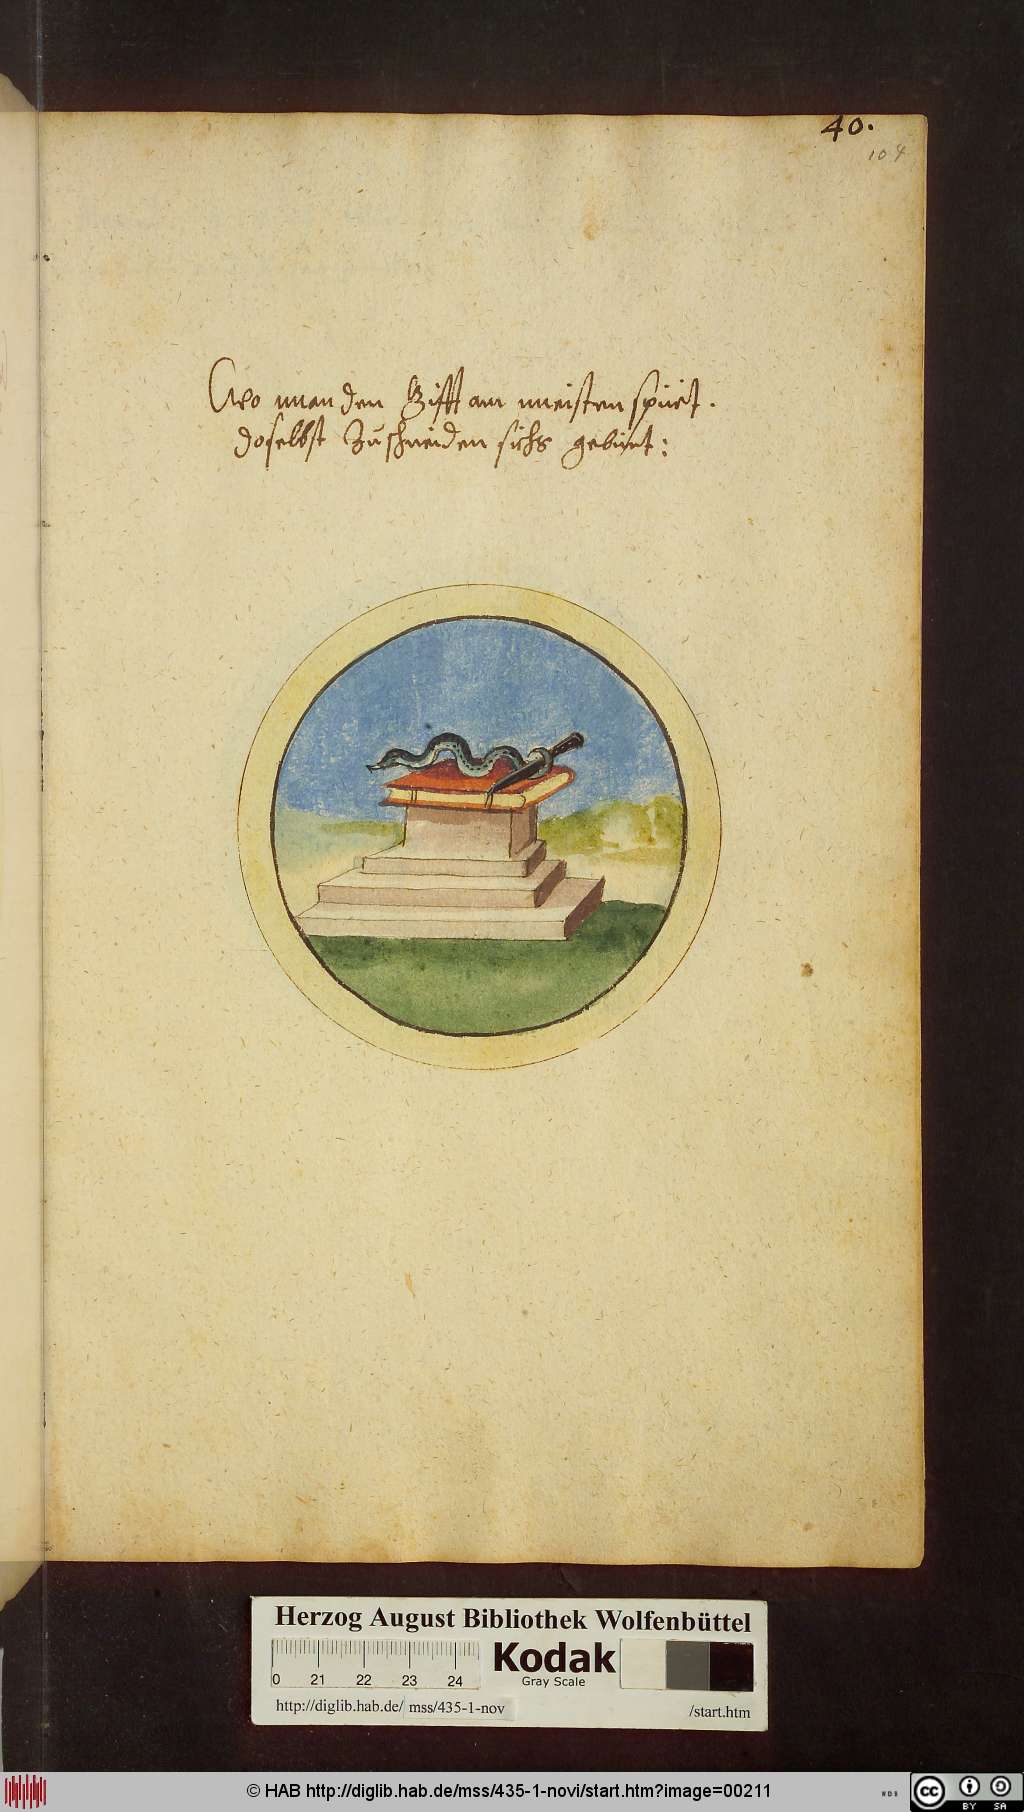 40.
104
Wo man den Gifft am meisten spürt.
doselbst zuschneiden sichs gebürt:
Herzog August Bibliothek Wolfenbüttel
Kodak
Gray Scale
0 21 22 23 24
http://diglib.hab.de/ mss/435-1-nov /start.htm
© HAB http://diglib.hab.de/mss/435-1-novi/start.htm?image=00211
WDB
cc BY SA